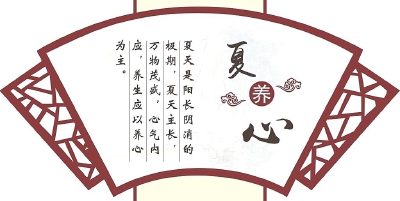 夏
养
心
夏天是阳长阴消的
极期，夏天主长，
万物茂盛，心气内
应，养生应以养心
为主。